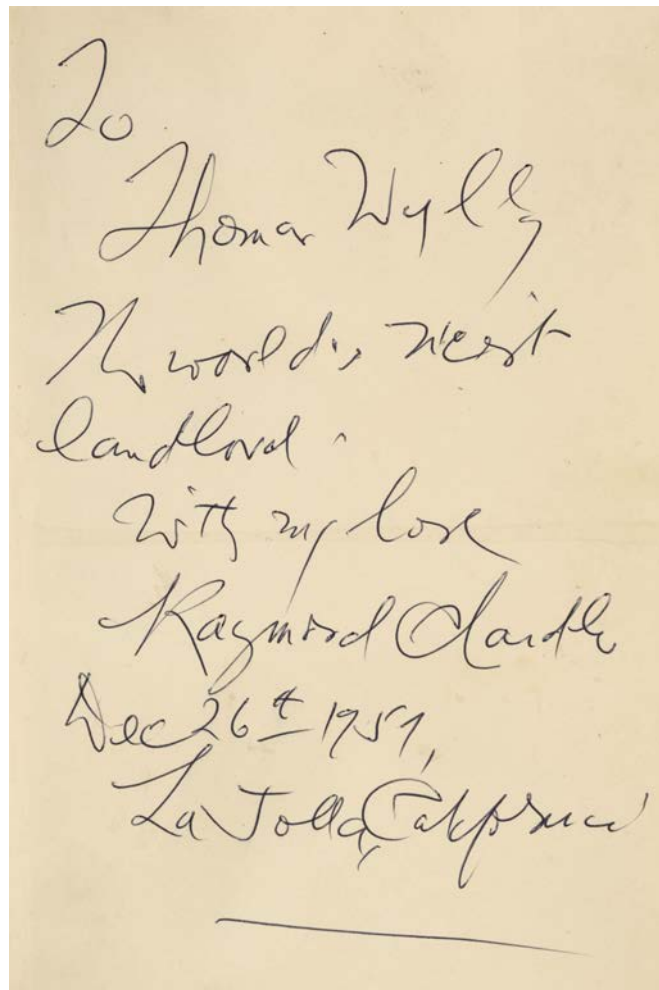 To
Thomas Wylly
The world's nicest
landlord.
With my love
Raymond Chandler
Dec 26th 1957,
La Jolla, California